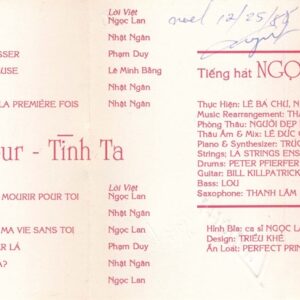 Lời Việt
Ngọc Lan
Nhật Ngân
SSER Phạm Duy
USE Lê Minh Bằng
Nhật Ngân
LA PREMIÈRE FOIS Ngọc Lan
Nhật Ngân
our - Tình Ta
Lời Việt
MOURIR POUR TOI Ngọc Lan
Nhật Ngân
MA VIE SANS TOI Ngọc Lan
ER LÁ Phạm Duy
A? Nhật Ngân
Ngọc Lan
noel 12/25/89
Tiếng hát NGỌ
Thực Hiện: LÊ BÁ CHƯ, N
Music Rearrangement: THA
Phòng Thâu: NGƯỜI ĐẸP
Thâu Âm & Mix: LÊ ĐỨC C
Piano & Synthesizer: TRÚC
Strings: LA STRINGS ENS
Drums: PETER PFIERFER
Guitar: BILL KILLPATRICK
Bass: LOU
Saxophone: THANH LÂM
Hình Bìa: ca sĩ NGỌC LAN
Design: TRIỀU KHÊ
Ấn Loát: PERFECT PRIN